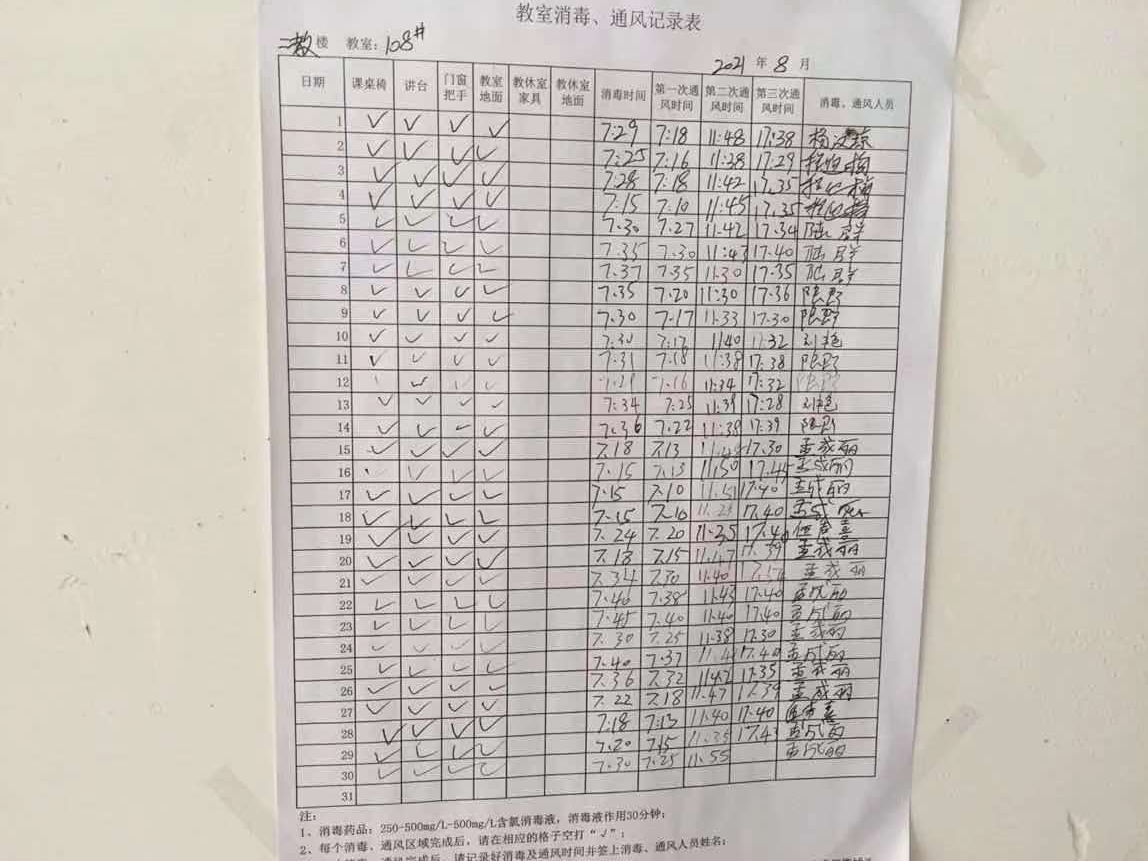 教室消毒、通风记录表
二教 楼 教室：108#
2021 年 8 月
日期 课桌椅 讲台 门窗把手 教室地面 教休室家具 教休室地面 消毒时间 第一次通风时间 第二次通风时间 第三次通风时间 消毒、通风人员
1 ✓ ✓ ✓ ✓ 7:29 7:18 11:48 17:38
2 ✓ ✓ ✓ ✓ 7:25 7:16 11:38 17:29
3 ✓ ✓ ✓ ✓ 7:28 7:18 11:42 17.35
4 ✓ ✓ ✓ ✓ 7:15 7:10 11:45 17.35
5 ✓ ✓ ✓ ✓ 7.30 7.27 11.42 17.34 陆群
6 ✓ ✓ ✓ ✓ 7.35 7.30 11:43 17.40 陆群
7 ✓ ✓ ✓ ✓ 7.37 7.35 11.30 17.35 陆群
8 ✓ ✓ ✓ ✓ 7.35 7.20 11:30 17.36
9 ✓ ✓ ✓ ✓ 7.30 7.17 11.33 17.30
10 ✓ ✓ ✓ ✓ 7:30 7:17 11:40 17:32
11 ✓ ✓ ✓ ✓ 7:31 7:18 11:38 17:38
12 ✓ ✓ ✓ 7.16 11:34 17:32
13 ✓ ✓ ✓ ✓ 7:34 7:25 11:39 17:28
14 ✓ ✓ - ✓ 7:36 7.22 11:38 17:39
15 ✓ ✓ ✓ ✓ 7.18 7.13 17.30 孟成丽
16 ✓ ✓ ✓ 7.15 7.13 11.50 17.45 孟成丽
17 ✓ ✓ ✓ ✓ 7.15 7.10 11.51 17.40 孟成丽
18 ✓ ✓ ✓ ✓ 7.15 7.10 17.40 孟成丽
19 ✓ ✓ ✓ ✓ 7.24 7.20 11.35 17.40
20 ✓ ✓ ✓ ✓ 7.18 7.15 11.47 17.39 孟成丽
21 ✓ ✓ ✓ ✓ 7.34 7.30 11.40 孟成丽
22 ✓ ✓ ✓ ✓ 7.46 7.38 11.43 17.40 孟成丽
23 ✓ ✓ ✓ ✓ 7.45 7.40 11.40 17.40 孟成丽
24 ✓ ✓ ✓ ✓ 7.30 7.25 11.38 17.30 孟成丽
25 ✓ ✓ ✓ ✓ 7.40 7.37 17.40 孟成丽
26 ✓ ✓ ✓ ✓ 7.36 7.32 11.42 17.35 孟成丽
27 ✓ ✓ ✓ ✓ 7.22 7.18 11.47 17.39 孟成丽
28 ✓ ✓ ✓ ✓ 7.18 7.13 11.40 17.40
29 ✓ ✓ ✓ ✓ 7.20 7.15 11.35 17.43 孟成丽
30 ✓ ✓ ✓ ✓ 7.30 7.25 11.55 孟成丽
31
注：
1、消毒药品：250-500mg/L-500mg/L含氯消毒液，消毒液作用30分钟；
2、每个消毒、通风区域完成后，请在相应的格子空打“√”；
通风完成后，请记录好消毒及通风时间并签上消毒、通风人员姓名；